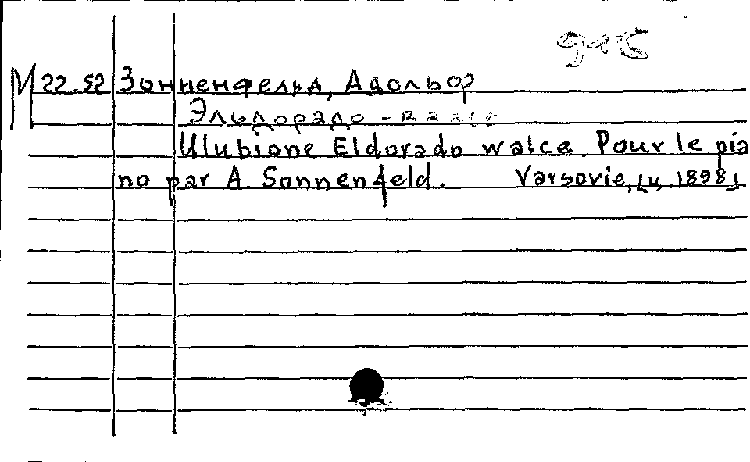 915
M 22.52 Зонненфельд, Адольф
Эльдорадо - вальс
Ulubione Eldorado walce. Pour le pia
no par A. Sonnenfeld. Varsovie,
1898